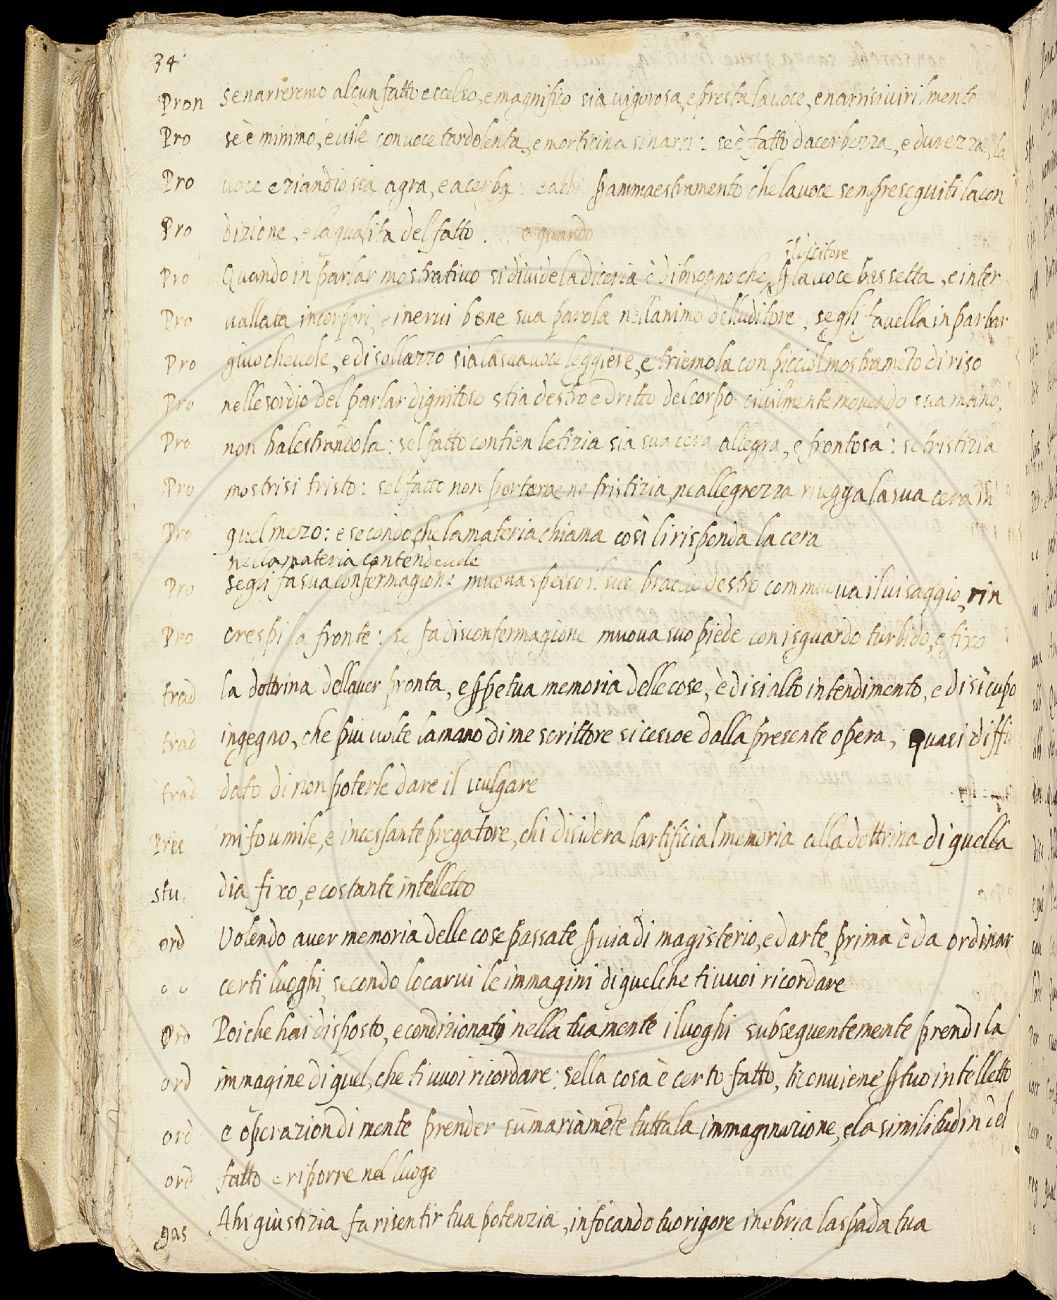 34
Pron se narreremo alcun fatto eccelso, e magnifico sia vigorosa, e presta la voce, e narrisi virilmente
Pro se è minimo, e vile con voce tardolenta, e morticina si narri: se è fatto d acerbezza, e durezza, la
Pro voce eziandio sia agra, e acerba: e abbi p ammaestramento che la voce sempre seguiti la con
Pro dizione, e la qualità del fatto . . e quando
il dicitore
Pro Quando in parlar mostrativo si divide la diceria è di bisogno che la voce bassetta, e inter
Pro vallata incorpori, e inervi bene sua parola nell animo dell uditore, se gli favella in parlar
Pro giuochevole, e di sollazzo sia la sua voce leggiere, e triemola con picciol mostrameto di riso
Pro nell esordio del parlar dignitoso stia destro e dritto del corpo civilmente movendo sua mano,
Pro non balestrandola: se l fatto contien letizia sia sua cera allegra, e frontosa: se tristizia
Pro mostrisi tristo: se l fatto non porterae ne tristizia, ne allegrezza riegga la sua cera in
Pro quel mezo: e secondo che la materia chiama così li risponda la cera
nella materia contendevole
Pro s egli fa sua confermagione muova spesso il suo braccio destro con muova il visaggio, rin
Pro crespi la fronte: se fa disconfermagione muova suo piede con isguardo turbido, e fixo
trad la dottrina dell aver pronta, e sspetua memoria delle cose, è di si alto intendimento, e di sì cupo
trad ingegno, che piu volte la mano di me scrittore si cessoe dalla presente opera, quasi diffi
trad dato di non poterle dare il vulgare
Pree mi fo umile, e incessante pregatore, chi disidera l artificial memoria alla dottrina di quella
stu. dia fixo, e costante intelletto
ord Volendo aver memoria delle cose passate p via di magisterio, e d arte, prima è da ordinar
certi luoghi, secondo locarvi le immagini di quelche ti vuoi ricordare
Oro Poiche hai disposto, e condizionato nella tua mente i luoghi subsequentemente prendi la
ord immagine di quel, che ti vuoi ricordare: s ella cosa è certo fatto, ti conviene p tuo intelletto
ord e operazion di mente prender sūmariamēte tutta la immaginazione, e la similitudin del
ord fatto e riporre nel luogo
gas Ahi giustizia fa risentir tua potenzia, infocando tuo rigore inebria la spada tua